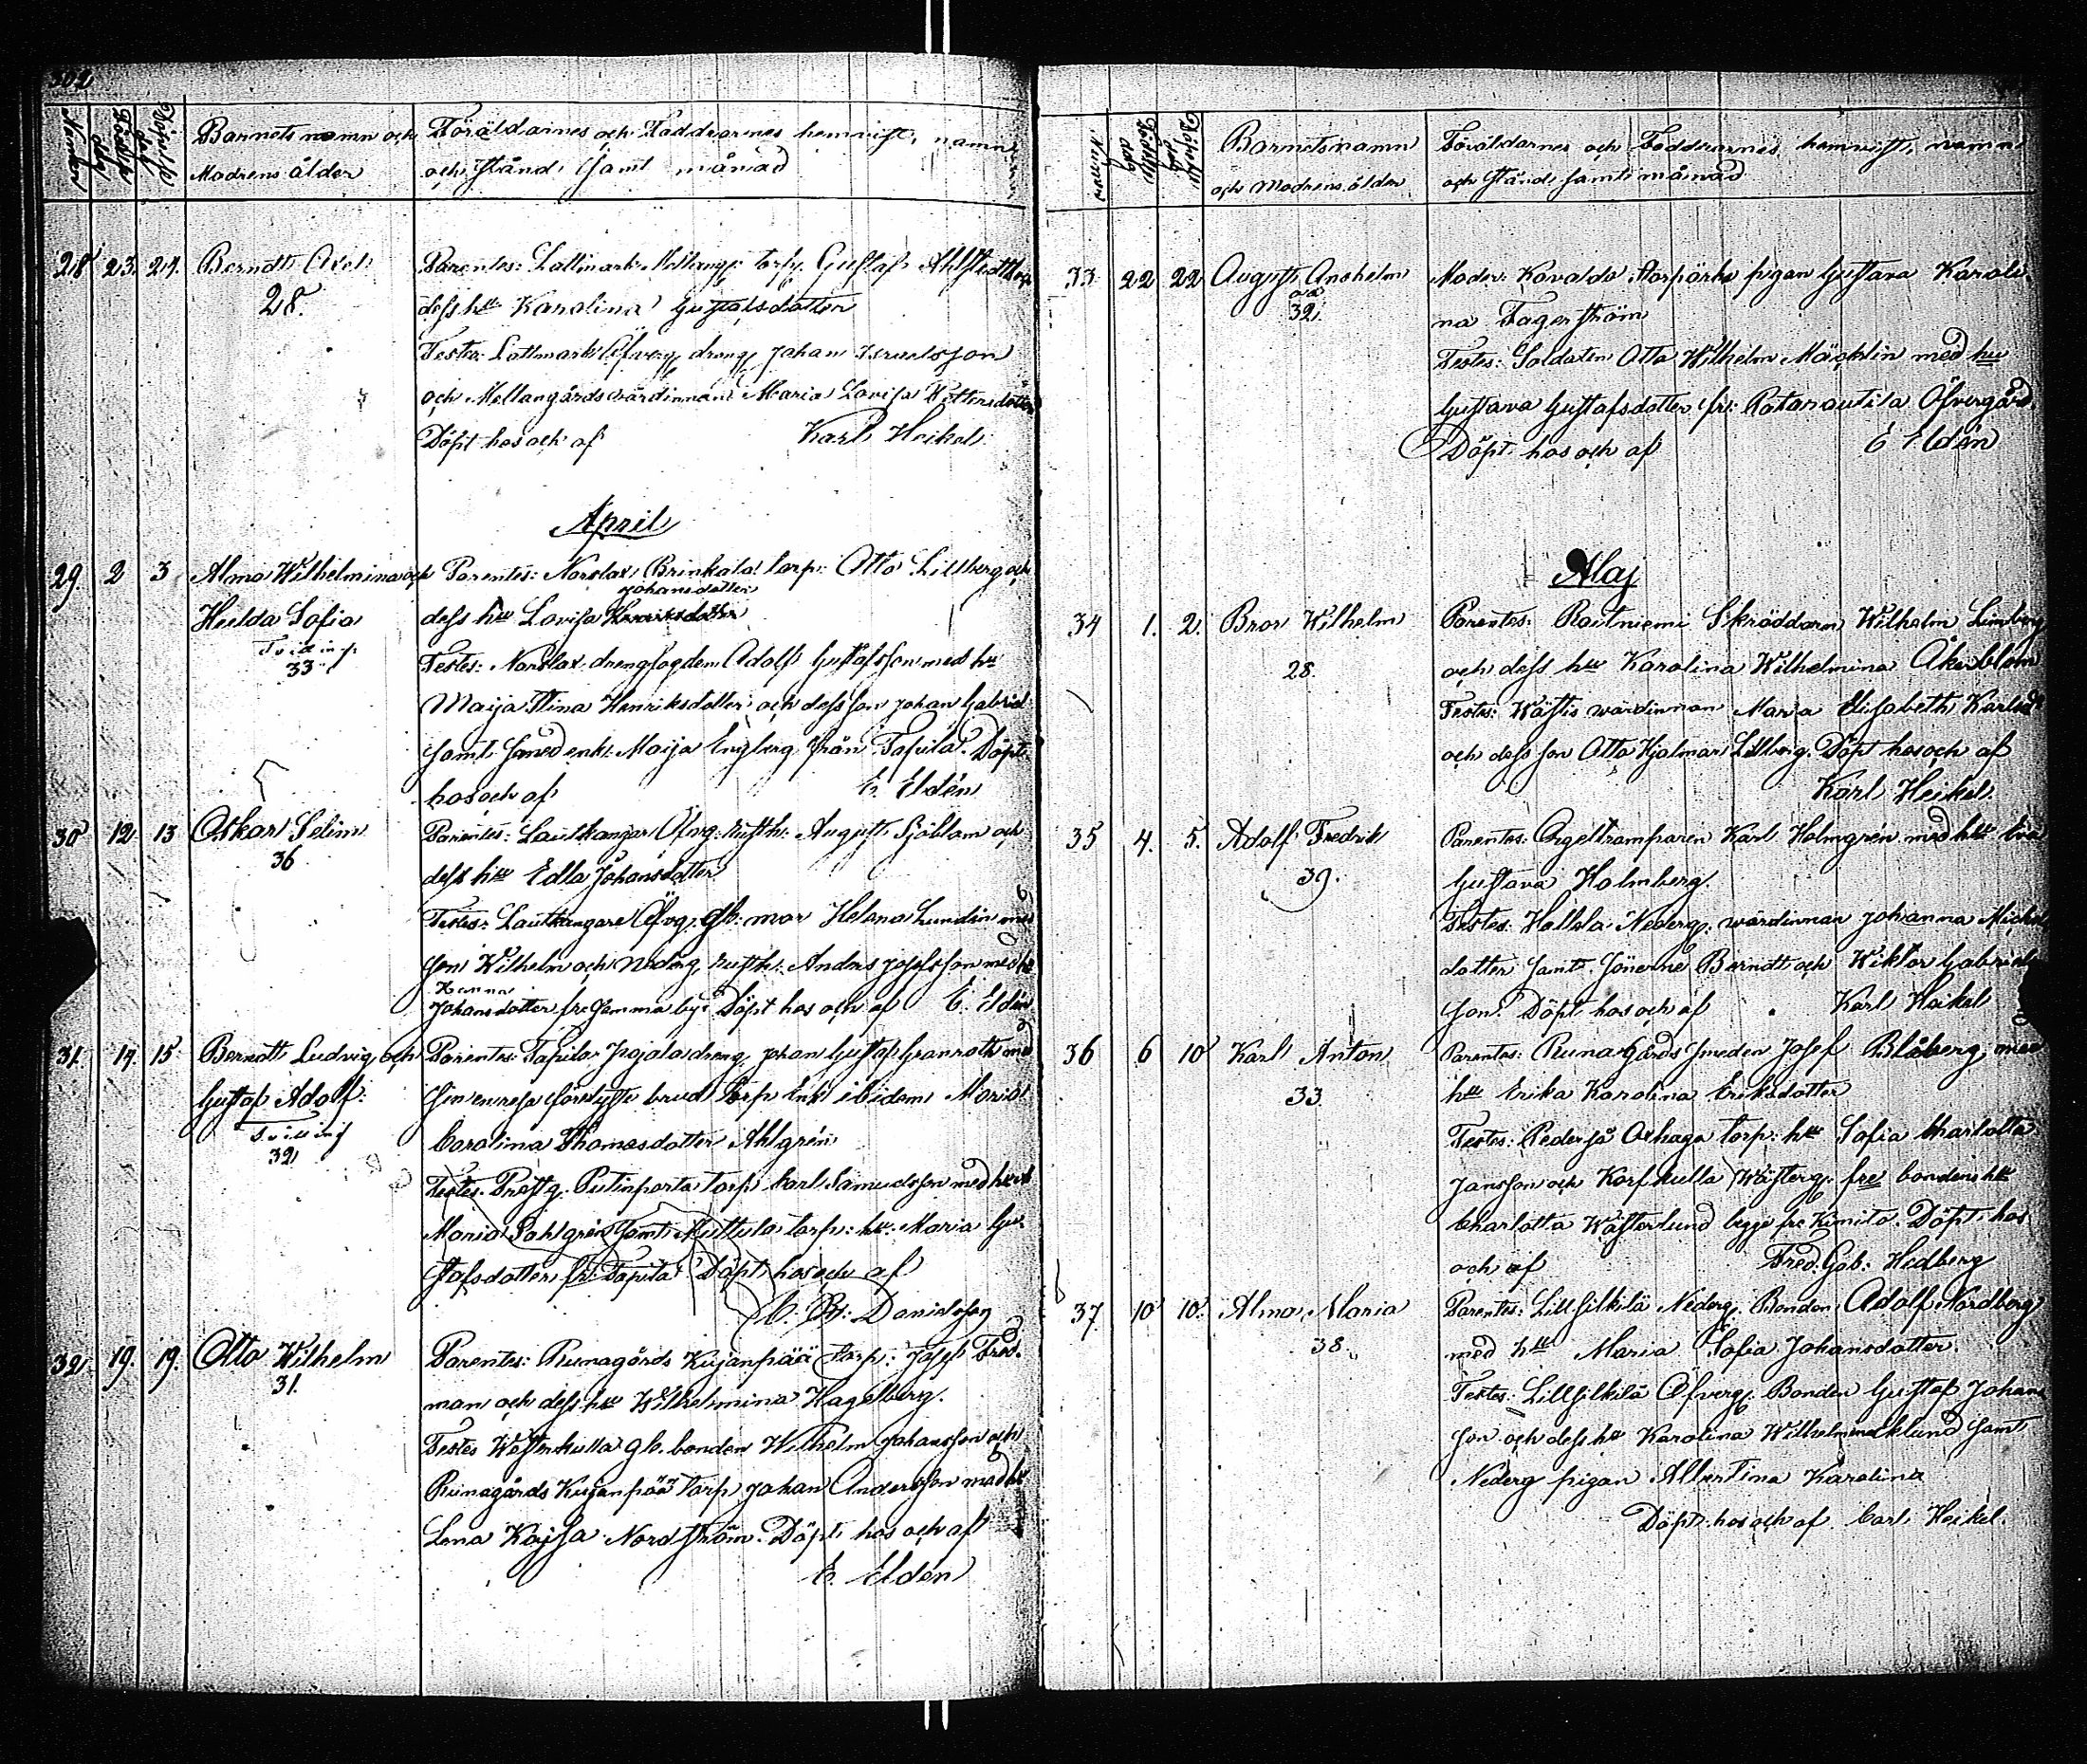 Nomber
Födelse dag
Döpelse dag
Barnets namn och
Modrens ålder
Föräldarnes och Faddrarnes hemvist, namn
och stånd samt månad
28 23. 24. Berndt Axel
28.
Parentes: Lattmark Mellang. torp. Gustaf Ahlstedt och
dess hu Karolina Gustafsdotter
Testes: Lattmark Öfverg. dreng Johan Israelsson
och Mellangårds värdinnan Maria Lovisa Pettersdotter
Döpt hos och af Karl Heikel
April
29. 2 3 Alma Wilhelmina och
Hselda Sofia
Tvilling.
33
Parentes: Norrlax Brinkala torp: Otto Lillberg och
Johansdotter
dess hu Lovisa Henriksdotter
Testes: Norrlax drengfogden Adolf Gustafsson med hu
Maija Stina Henriksdotter och dess son Johan Gabriel
samt smed enk. Maija Engberg från Tapila. Döpt
hos och af E. Eldén
30 12 13 Oskar Selim
36
Parentes: Lautkangar Öfvg. rusth. August Sjöblom och
dess hu Edla Johansdotter
Testes: Lautkangare Öfvg. gb: mor Helena Lundin med
son Wilhelm och Nederg. rusth: Anders Josefsson med hu
Hanna
Johansdotter fr: Jemma by. Döpt hos och af E. Eldén
31. 14. 15. Berndt Ludvig och
Gustaf Adolf
Tvilling
32
Parentes: Tapila dreng Johan Gustaf Granroth med
sin förelyste brud Torp Enk. ibidem Maria
Carolina Thomasdotter Ahlgrén
Testes. Prestg. Putinporta torp. Carl Samuelsson med hu
Maria Pahlgrén samt Muttula torp: hu: Maria Gu-
stafsdotter fr: Tapila Döpt hos och af
C. R. Danielsson
32 19. 19. Otto Wilhelm
31.
Parentes: Runagårds Kujanpää torp: Josef Fred-
man och dess hu Wilhelmina Hagelberg.
Testes Westerkulla gb. bonden Wilhelm Johansson och
Runagårds Kujanpää torp Johan Andersson med hu
Lena Kajsa Nordström. Döpt hos och af
E. Eldén
Nummer
Födelse dag
Döpelse dag
Barnets namn
och Modrens ålder
Föräldarnes och Faddrarnes hemvist, namn
och stånd samt månad
33 22 22 August Anshelm
oä
32.
Moder: Kovalda pigan Gustava Karoli-
na Fagerström
Testes: Soldaten Otto Wilhelm Mäcklin med hu
Gustava Gustafsdotter fr: Patanautila Öfvergård.
Döpt hos och af E Eldén
Maj
34 1. 2. Bror Wilhelm
28.
Parentes: Raitniemi Skräddarn Wilhelm Limberg
och dess hu Karolina Wilhelmina Åkerblom
Testes: Wästis wärdinnan Maria Elisabeth Karlsd
och dess son Otto Hjalmar Lillberg. Döpt hos och af
Karl Heikel.
35 4. 5. Adolf Fredrik
39.
Parentes: Orgeltramparen Karl Holmgrén med hu Eva
Gustava Holmberg.
Testes: Hallela Nederg. wärdinnan Johanna Mickels
dotter samt sönerne Berndt och Wiktor Gabriels
son. Döpt hos och af Karl Heikel
36 6 10 Karl Anton
33.
Parentes: Runagårds smeden Josef Blåberg med
hu Erika Karolina Eriksdotter
Testes: Pedersjö Oxhaga torp: hu Sofia Charlotta
Jansson och Korskulla Westerg. fre bondens hu
Charlotta Wästerlund begge fr Kimito. Döpt hos
och af Fred: Gab: Hedberg
37. 10 10. Alma Maria
38.
Parentes: Lillsilkilä Nederg. Bonden Adolf Nordberg
med hu Maria Sofia Johansdotter.
Testes: Lillsilkilä Öfverg. Bonden Gustaf Johans
son och dess hu Karolina Wilhelmina Eklund samt
Nederg pigan Albertina Karolina
Döpt hos och af Carl Heikel.